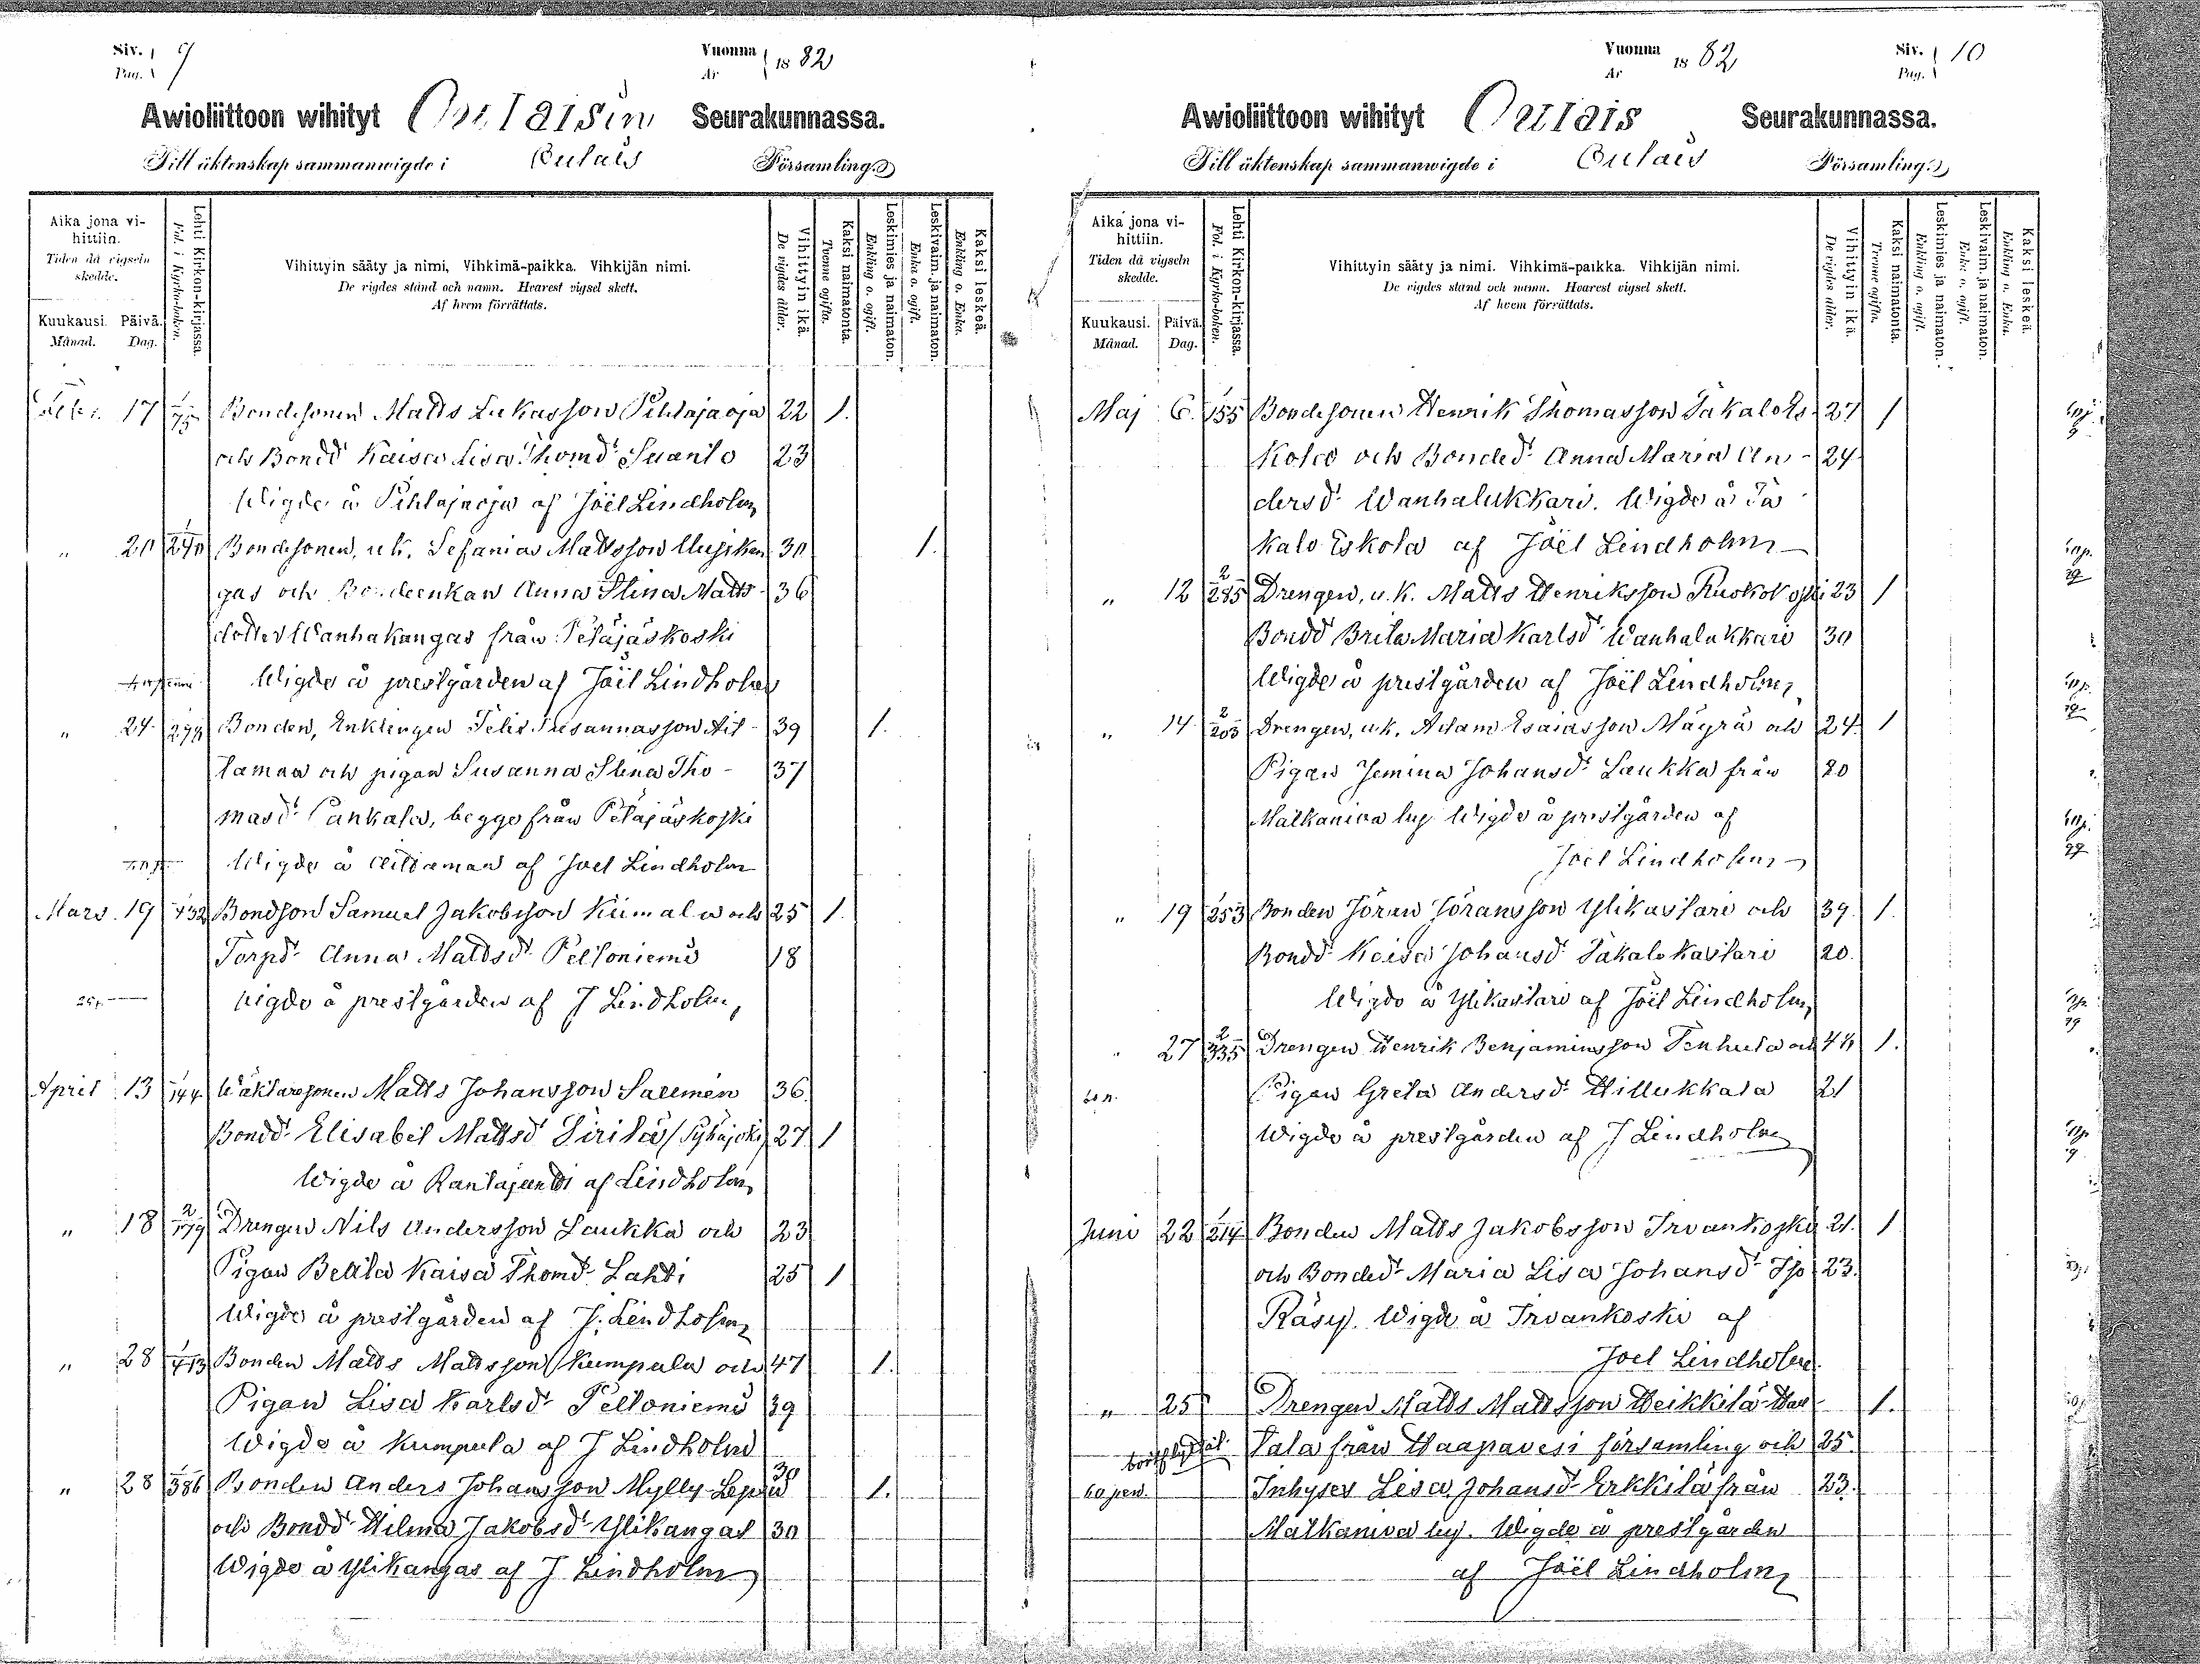 Siv. 9
Pag.
Vuonna 1882
År
Awioliittoon wihityt Oulaisin Seurakunnassa.
Till äktenskap sammanwigde i Oulais Församling.
Aika jona vihittiin.
Tiden då vigseln skedde.
Kuukausi. Månad.
Päivä. Dag.
Lehti Kirkon-kirjassa.
Fol. i Kyrko-boken.
Vihittyin sääty ja nimi, Vihkimä-paikka. Vihkijän nimi.
De vigdes stånd och namn. Hvarest vigsel skett.
Af hvem förrättats.
Vihittyin ikä.
De vigdes ålder.
Kaksi naimatonta.
Tvenne ogifta.
Leskimies ja naimaton.
Enkling o. ogift.
Leskivaim. ja naimaton.
Enka o. ogift.
Kaksi leskeä.
Enkling o. Enka.
17 1/75 Bondesonen Matts Lukasson Pihlajaoja 22 1.
och Bondd Kaisa Lisa Thomd Suanto 23
Wigde å Pihlajaoja af Joël Lindholm
" 20 1/240 Bondesonen, u k. Sefanias Mattsson Uusikan 30 1.
gas och Bondeenkan Anna Stina Matts- 36
dotter Wanhakangas från Petäjäskoski
Wigde å prestgården af Joël Lindholm
" 24 Bonden, Enklingen Felix Susannasson Ait- 39 1.
tamaa och pigan Susanna Stina Tho- 37
masd Pankala, begge från Petäjäskoski
Wigde å Aittamaa af Joel Lindholm
Mars 19 1/432 Bondson Samuel Jakobsson Kiimala och 25 1.
Torpd Anna Mattsd Peltoniemi 18
vigde å prestgården af J Lindholm
April 13 1/144 Wäktaresonen Matts Johansson Salemén 36
Bondd Elisabet Mattsd Siirilä (Pyhäjoki) 27 1
Wigde å Rantajuntti af Lindholm
" 18 2/179 Drengen Nils Andersson Laukka och 23
Pigan Beata Kaisa Thomd Lahti 25 1
Wigde å prestgården af J. Lindholm
" 28 1/413 Bonden Matts Mattsson Kumpula och 47 1.
Pigan Lisa Karlsd Peltoniemi 39
Wigde å Kumpula af J Lindholm
" 28 1/386 Bonden Anders Johansson Mylly-Leppä 30 1.
och Bondd Hilma Jakobsd Ylikangas 30
Wigde å Ylikangas af J Lindholm
Vuonna 1882
År
Siv. 10
Pag.
Awioliittoon wihityt Oulais Seurakunnassa.
Till äktenskap sammanwigde i Oulais Församling.
Aika jona vihittiin.
Tiden då vigseln skedde.
Kuukausi. Månad.
Päivä. Dag.
Lehti Kirkon-kirjassa.
Fol. i Kyrko-boken.
Vihittyin sääty ja nimi. Vihkimä-paikka. Vihkijän nimi.
De vigdes stånd och namn. Hvarest vigsel skett.
Af hvem förrättats.
Vihittyin ikä.
De vigdes ålder.
Kaksi naimatonta.
Tvenne ogifta.
Leskimies ja naimaton.
Enkling o. ogift.
Leskivaim. ja naimaton.
Enka o. ogift.
Kaksi leskeä.
Enkling o. Enka.
Maj 6. 1/155 Bondesonen Henrik Thomasson Jakalo Es- 27 1
kola och Bonded Anna Maria An- 24
dersd Wanhalukkari. Wigde å Ja
kalo Eskola af Joël Lindholm
" 12 2/285 Drengen, u. k. Matts Henriksson Ruokokoski 23 1
Bondd Brita Maria Karlsd Wanhalukkari 30
Wigde å prestgården af Joël Lindholm
" 14 2/203 Drengen, u.k. Adam Esaiasson Mäyrä och 24 1
Pigan Jemina Johansd Laukka från 20
Matkaniva by Wigde å prestgården af
Joel Lindholm
" 19 1/253 Bonden Jöran Jöransson Ylikastari och 39. 1.
Bondd Kaisa Johansd Jakalo Kastari 20.
Wigde å Ylikastari af Joël Lindholm
" 27 2/335 Drengen Henrik Benjaminsson Tenhula och 44 1.
Pigan Greta Andersd Hillukkala 21
Wigde å prestgården af J Lindholm
Juni 22 1/214 Bonden Matts Jakobsson Irvankoski 21. 1
och Bonded Maria Lisa Johansd Iso 23.
Räsy. Wigde å Irvankoski af
Joel Lindholm.
" 25 Drengen Matts Mattsson Heikkilä- 1.
från Haapavesi församling och 25.
Inhyses Lisa Johansd Erkkilä från 23.
Matkaniva by. Wigde å prestgården
af Joël Lindholm